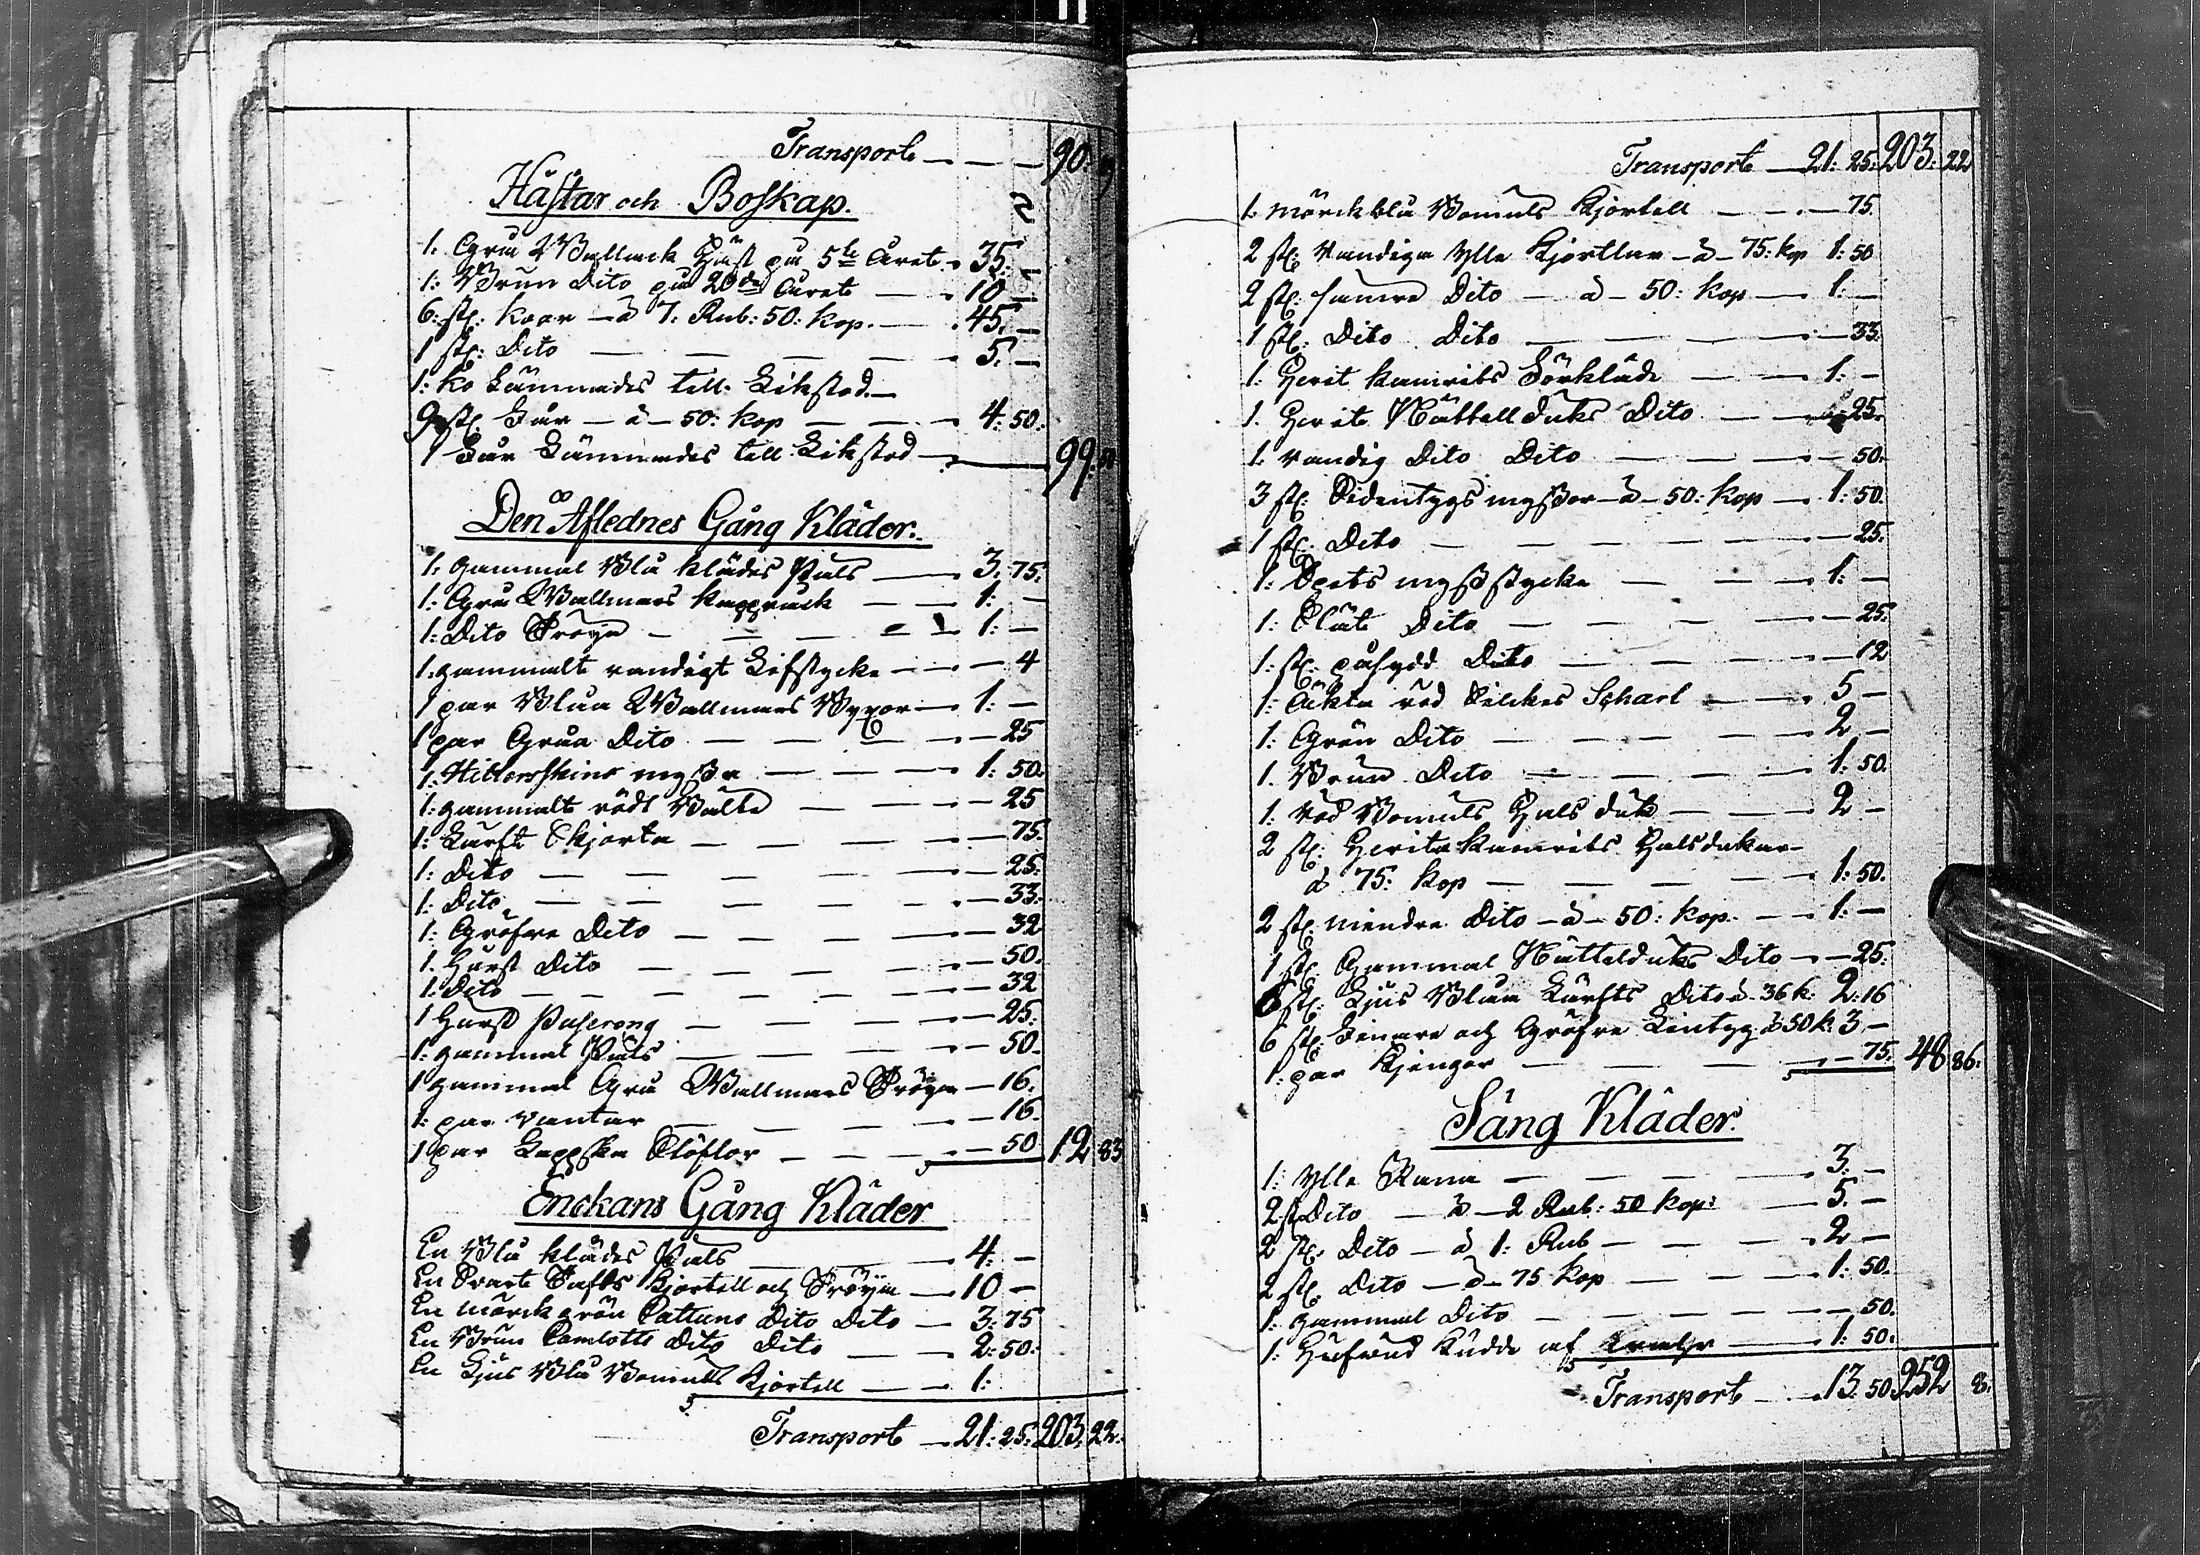 Transport — — — 90.
Hästar och Boskap.
1: Grå Wallack Häst på 5te Året. 35: —
1: Brun Dito på 20de Året — 10 —
6: st: Koor — à 7. Rub: 50: Kop. — 45. —
1 st: Dito — — — — 5. —
1: Ko Lämnades till Likstod. —
9 st: Får — à — 50: Kop — — — 4: 50:
1 Får Lämnades till Likstod — 99:
Den Aflednes Gång Kläder.
1: gammal Blå klädes Päls — 3. 75:
1: Grå Wallmars Kappråck — — 1: —
1: Dito Tröya — — — — 1: —
1: gammalt randigt Lifstycke — — 4
1 par Blåa Wallmars Byxor — 1: —
1 par Gråa Dito — — — — 25
1: Hillersskins myssa — — — 1: 50.
1: gammalt rödt Bälte — — — 25
1: Lärfts Skjorta — — — — 75.
1: Dito — — — — — 25.
1: Dito — — — — — 33.
1: Gröfre Dito — — — — 32
1. Hurst Dito — — — — 50.
1: Dito — — — — — 32
1 Hurst — — — 25.
1: gammal Päls — — — — 50.
1 gammal Grå Wallmars Tröya — 16.
1: par Vantar — — — — 16.
1 par Lappska Stöflor — — — 50 12 83
Enckans Gång Kläder
En Blå klädes Päls — — 4: —
En Svart Tafts Kjortell och Tröya — 10 —
En mörck grön Cattuns Dito Dito — 3: 75
En Brun Camlotts Dito Dito — 2: 50:
En Ljus Blå Bomulls Kjortell — 1:
Transport — 21: 25. 203. 22.
Transport — 21: 25. 203: 22
1: Mörckblå Bomuls Kjortell — — 75.
2 st: Randiga Ylle Kjortlar — à — 75: Kop 1: 50
2 st: Samre Dito — à — 50: Kop — 1: —
1 st: Dito Dito — — — — 33.
1: Hvit Kamrits Förkläde — — 1: —
1. Hvit Nättelduks Dito — — 25.
1. Randig Dito Dito — — — 50.
3 st: Sidentygs myssor — à — 50: Kop — 1: 50.
1 st: Dito — — — — — 25.
1: Spets mysstycke — — — 1: —
1: Slät Dito — — — — 25.
1: st: påsydd Dito — — — — 12
1: Äkta röd Silckes Scharl — — 5 —
1: Grön Dito — — — — 2 —
1. Brun Dito — — — — 1: 50.
1. Röd Bomuls Hals duk — — 2 —
2 st: Hvita Kamrits Halsdukar
à 75: Kop — — — — 1: 50.
2 st: mindre Dito — à — 50: Kop. — 1: —
1 st: Gammal Nättelduks Dito — — 25.
6 st: Ljus Blåa Lärfts Dito à 36 k: 2: 16
6 st: Finare och Gröfre Lintyg à 50 k: 3 —
1: par Kjengor — — — 75. 48 86.
Säng Kläder.
1: Ylle Rana — — — — 3. —
2 st Dito — à — 2 Rub: 50 Kop: — 5. —
2 st: Dito — à 1: Rub — — — 2 —
2 st: Dito — à — 75 Kop — — — 1: 50.
1: gammal Dito — — — — 50.
1: Hufvud Kudde af — 1: 50.
Transport — 13. 50 252 8.